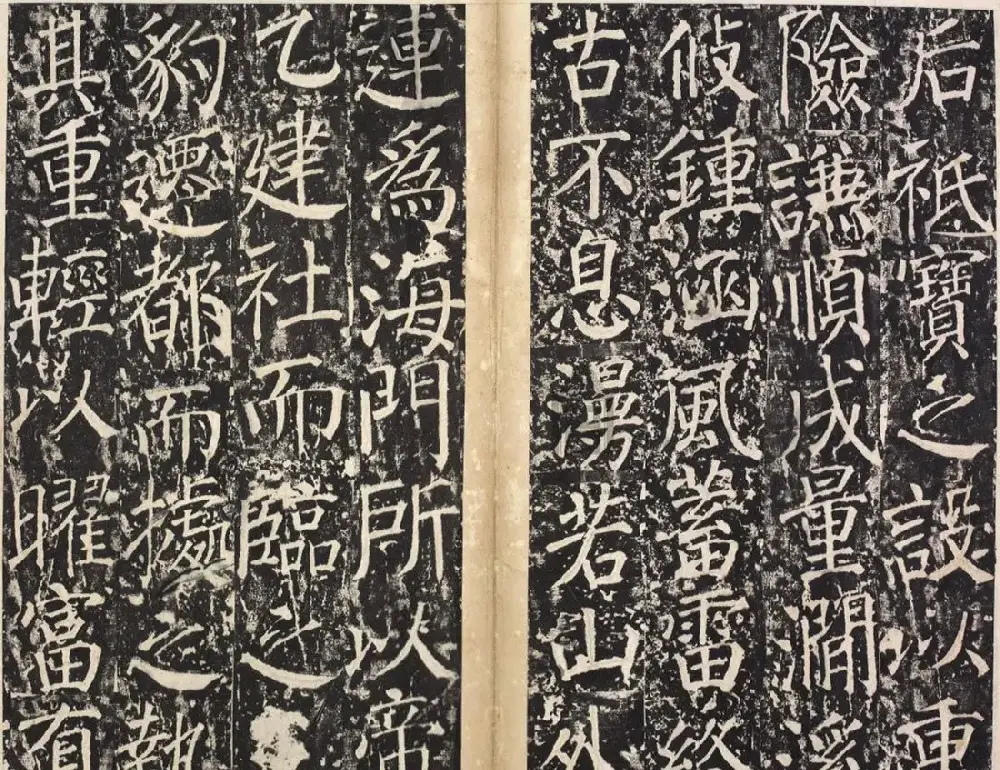 后祇寶之設以
險謙順成量澗溪
攸鍾涵風蓄雷終
古不息漫若山外
連為海門所以帝
乙建社而臨之
豹遷都而據之
其重輕以曜富有